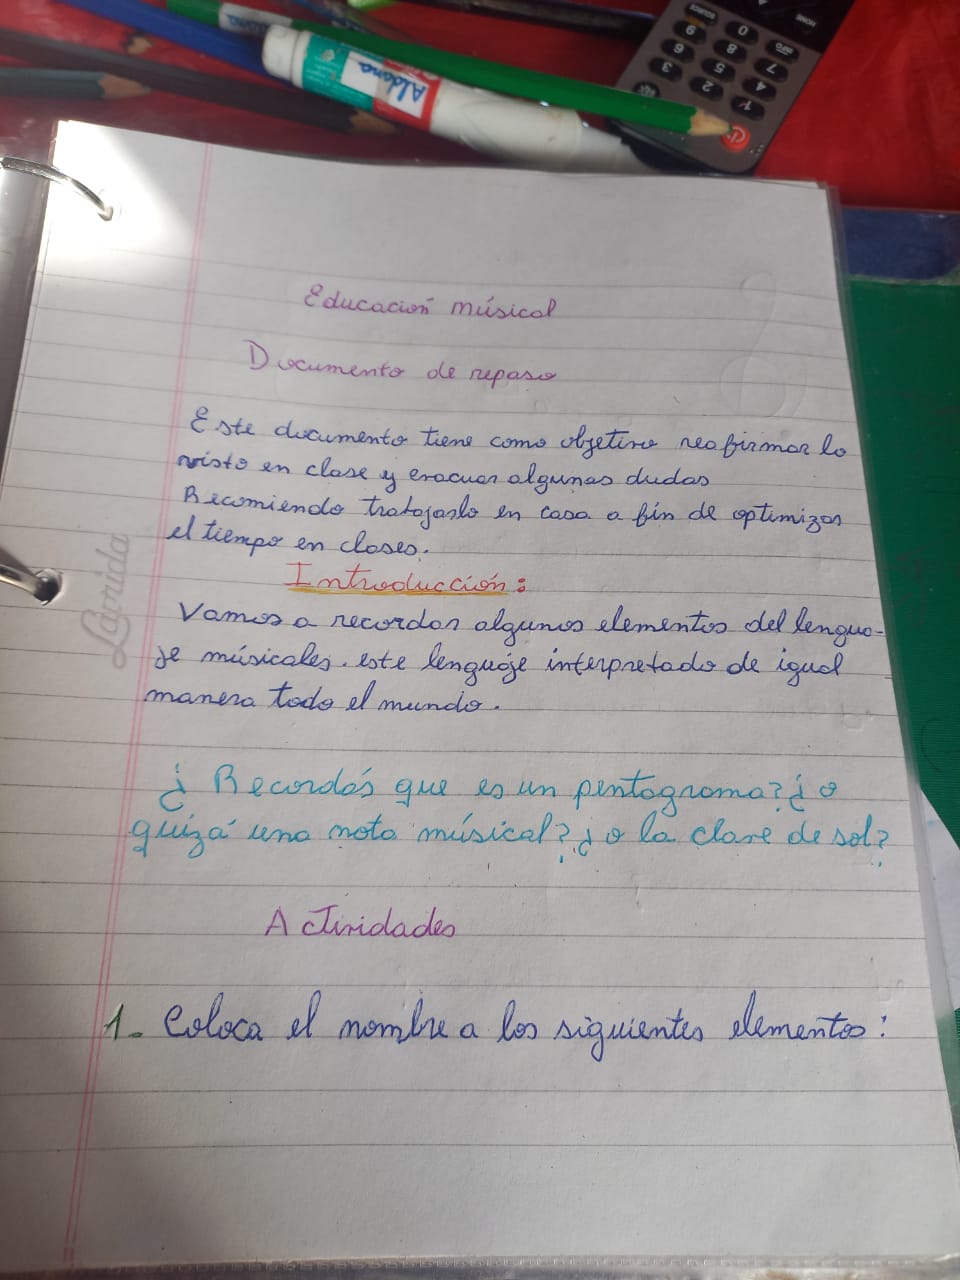 Aldana
HOME
SOURCE
0
9
8
7
6
5
4
3
2
1
Educación músical
Documento de repaso
Este documento tiene como objetivo reafirmar lo
visto en clase y evacuar algunas dudas
Recomiendo trabajarlo en casa a fin de optimizar
el tiempo en clases.
Introducción:
Vamos a recordar algunos elementos del lengua-
je músicales. este lenguáje interpretado de igual
manera todo el mundo.
¿Recordás que es un pentagrama? ¿o
quizá una nota músical? ¿o la clave de sol?
Actividades
1. Coloca el nombre a los siguientes elementos:
Laprida